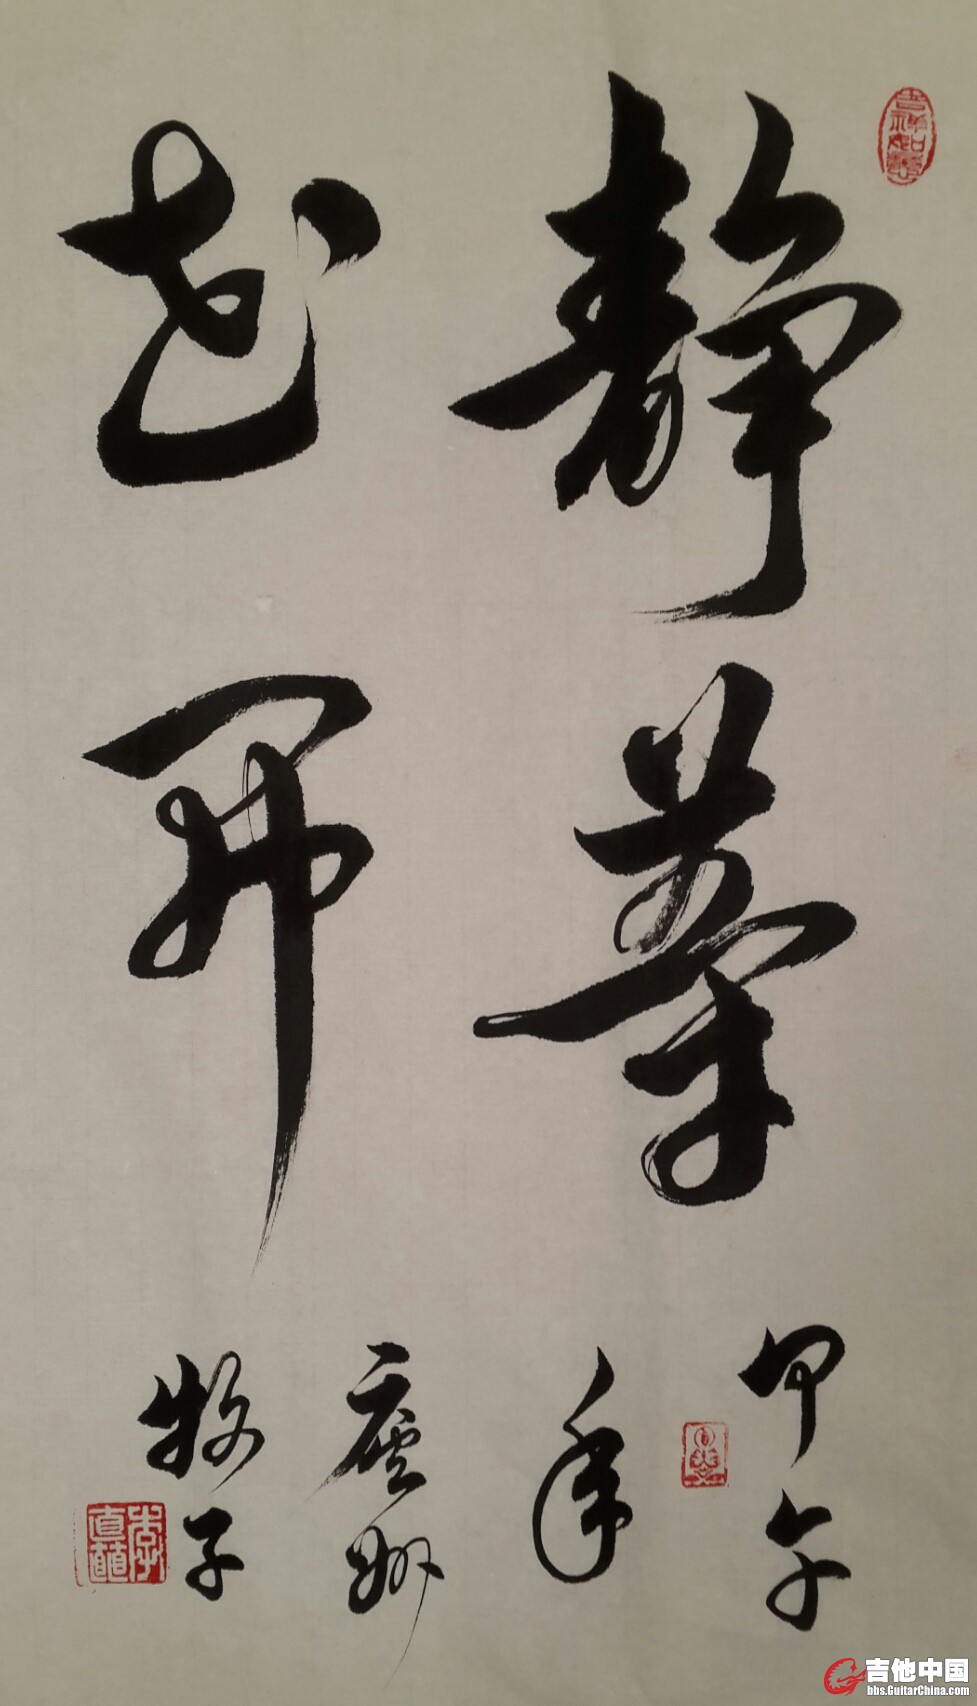 吉祥如意
静等
花開
甲午
年
廬州
牧子
吉他中国
bbs.GuitarChina.com